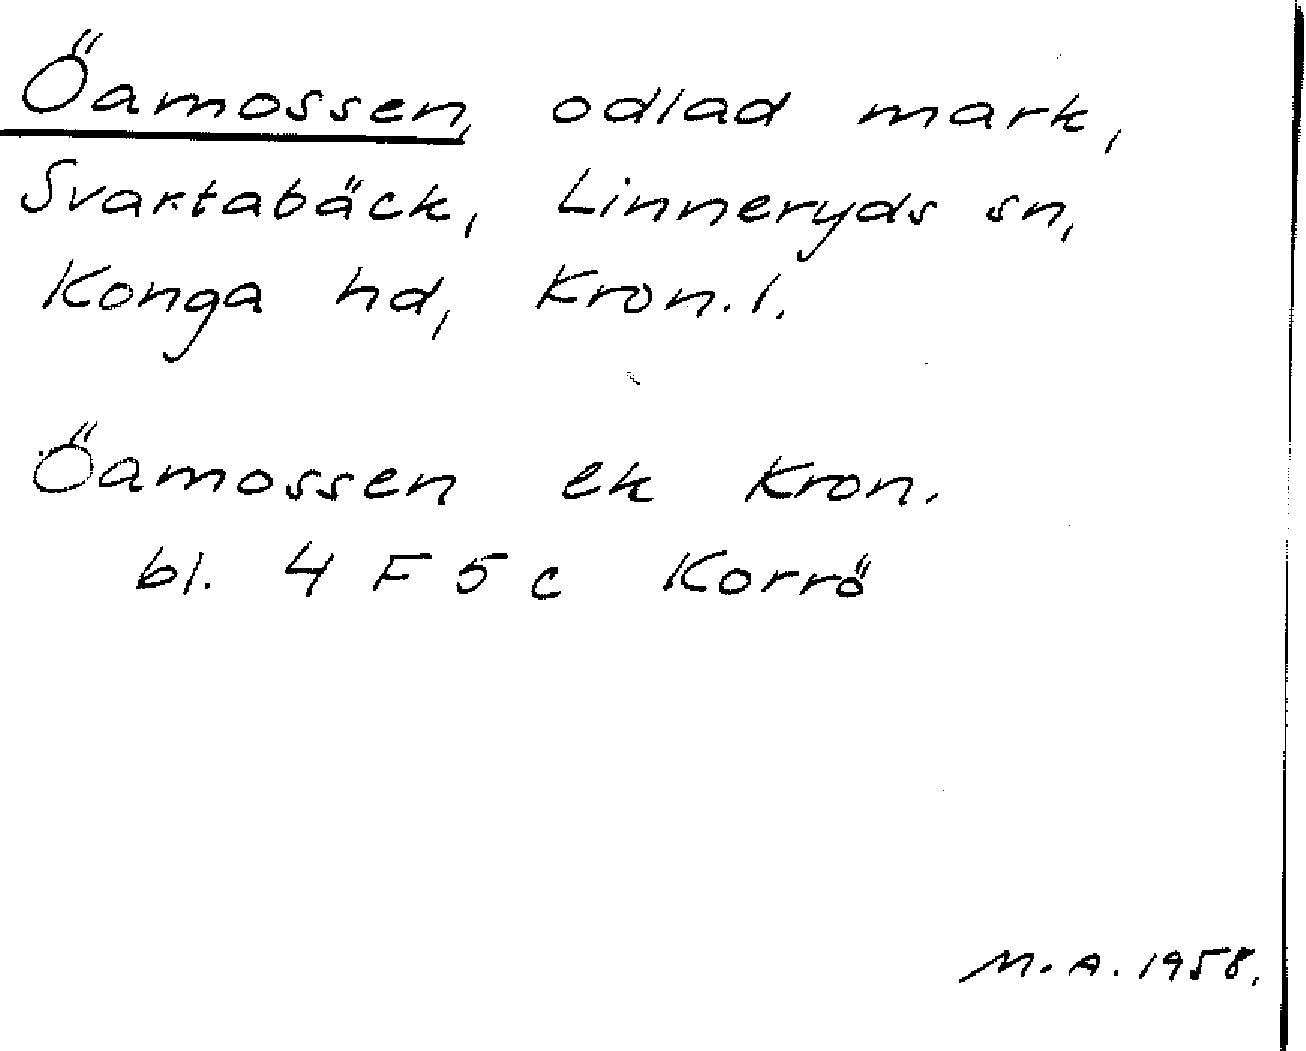 Öamossen, odlad mark,
Svartabäck, Linneryds sn,
Konga hd, Kron. l.
Öamossen ek Kron.
bl. 4 F 5 c Korrö
M. A. 1958.